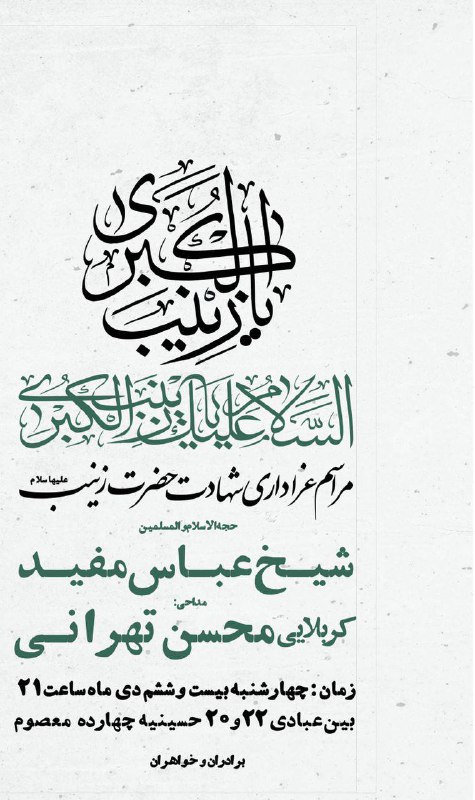 یا زینب الکبری
السلام علیک یا زینب الکبری
مراسم عزاداری شهادت حضرت زینب علیها سلام
حجه الاسلام والمسلمین
شیخ عباس مفید
مداحی:
کربلایی محسن تهرانی
زمان : چهارشنبه بیست و ششم دی ماه ساعت ۲۱
بین عبادی ۲۲ و ۲۰ حسینیه چهارده معصوم
برادران و خواهران